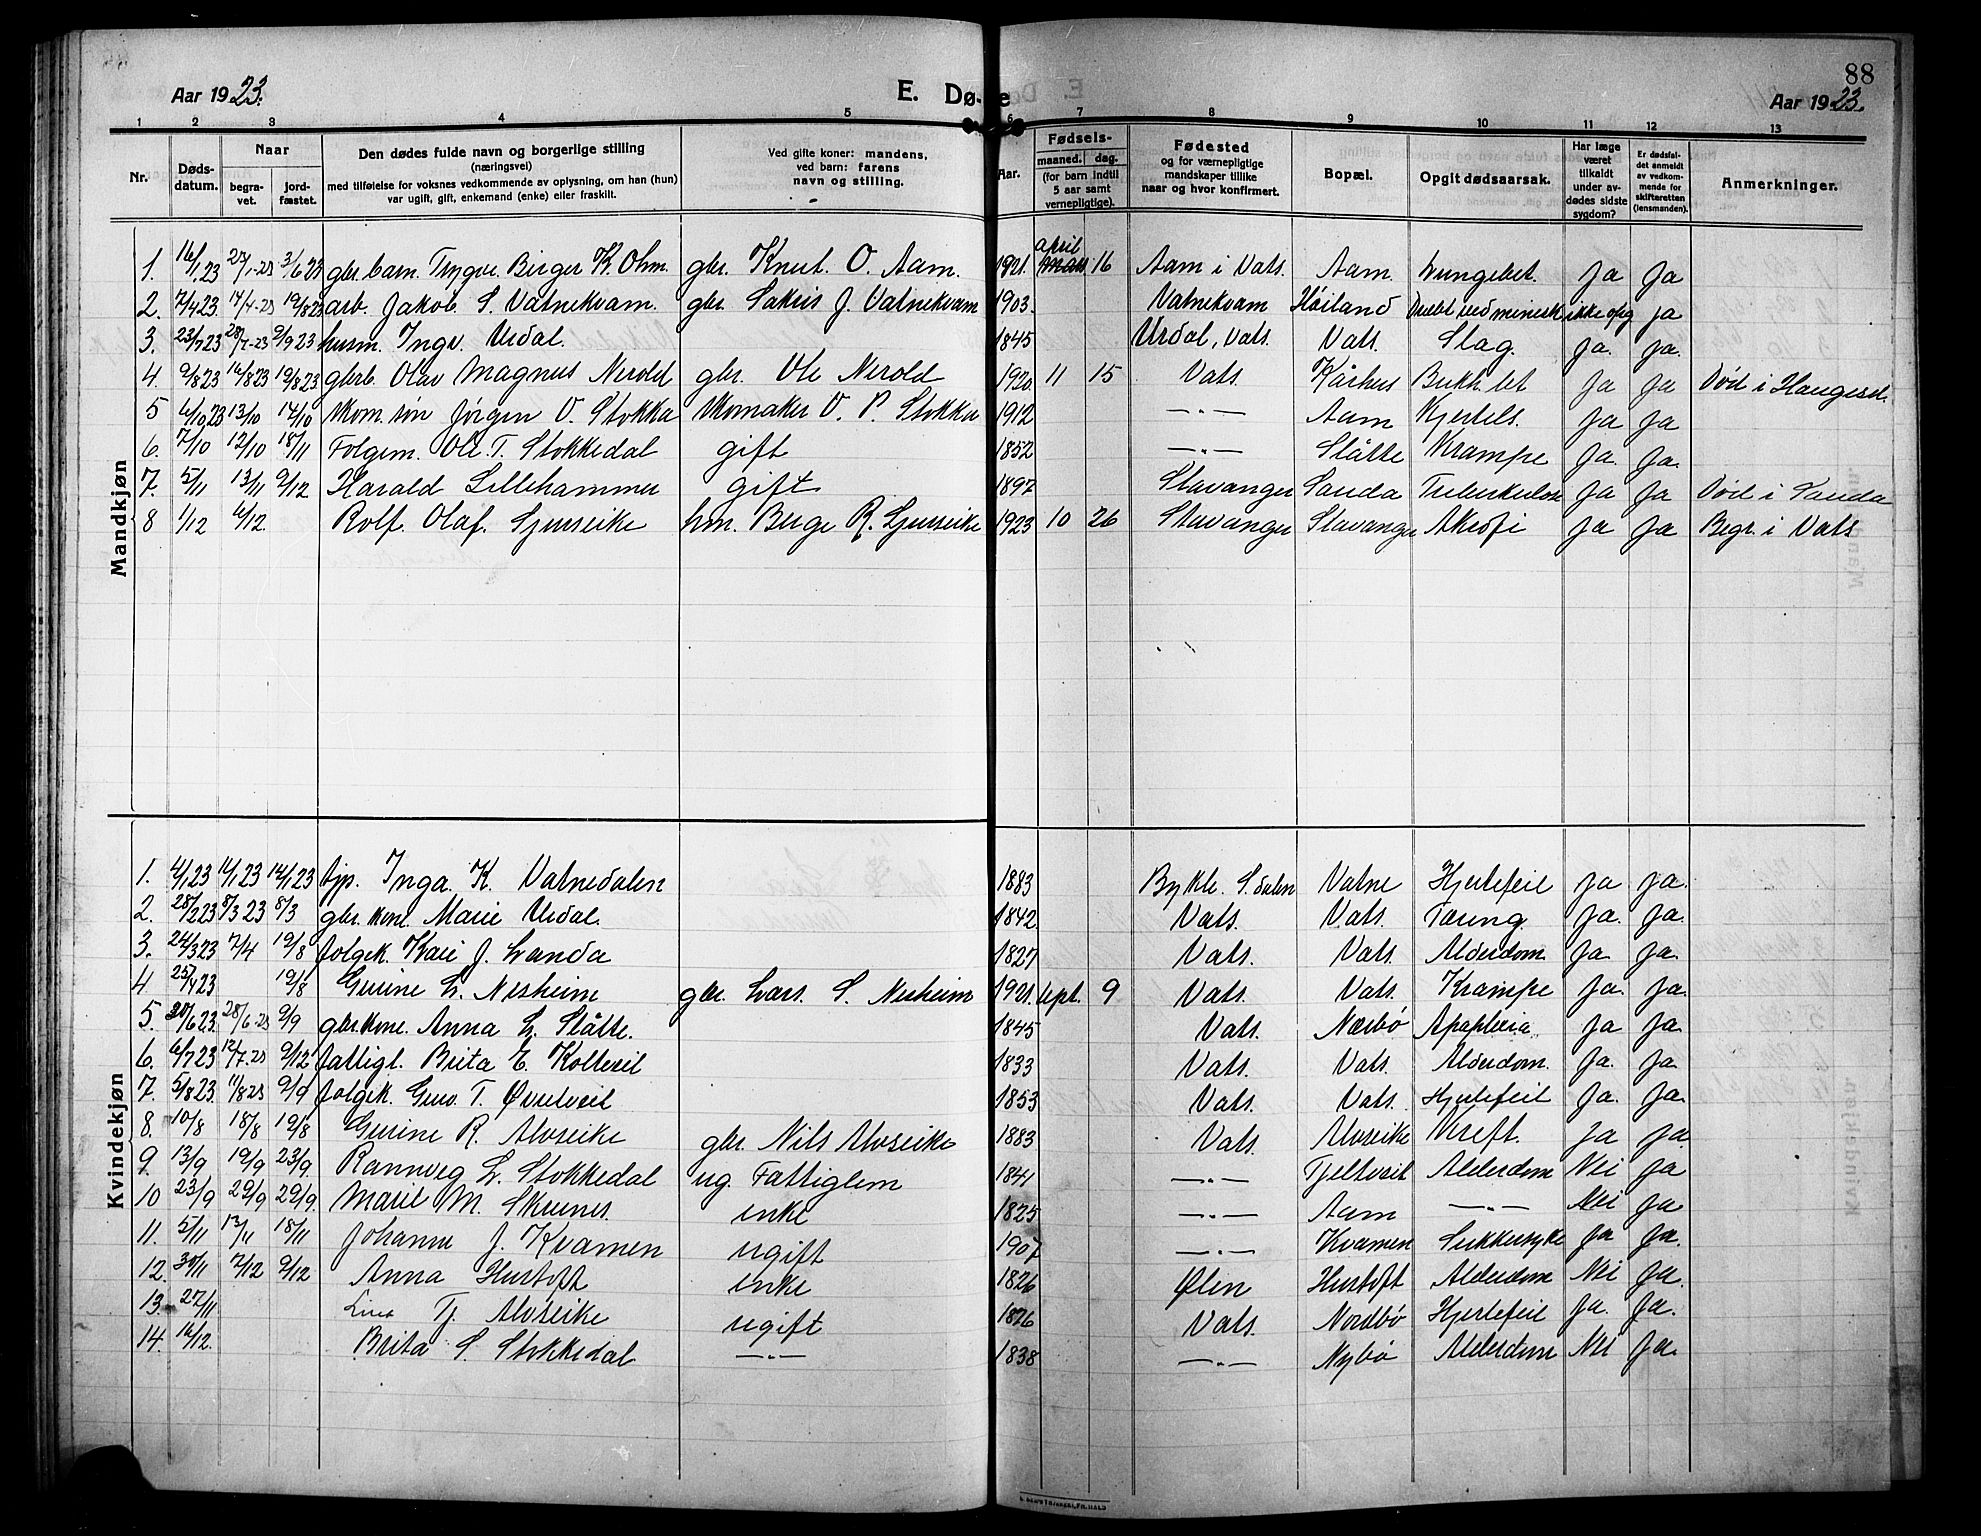 88
Aar 1923.
E. Dø e
Aar 1923.
1 2 3 4 5 6 7 8 9 10 11 12 13
Nr.
Dødsdatum.
Naar
begravet.
jordfæstet.
Den dødes fulde navn og borgerlige stilling
(næringsvei)
med tilføielse for voksnes vedkommende av oplysning, om han (hun)
var ugift, gift, enkemand (enke) eller fraskilt.
Ved gifte koner: mandens,
ved barn: farens
navn og stilling.
Aar.
Fødsels-
maaned. dag.
(for barn indtil
5 aar samt
vernepligtige).
Fødested
og for værnepligtige
mandskaper tillike
naar og hvor konfirmert.
Bopæl.
Opgit dødsaarsak.
Har læge
været
tilkaldt
under avdødes sidste
sygdom?
Er dødsfaldet anmeldt
av vedkommende for
skifteretten
(lensmanden).
Anmerkninger.
Mandkjøn
1. 16/1 23 3/6 23 gbr. barn Trygve Birger K. Ohm. gbr. Knut O. Aam. 1921. april 16 Aam i Vats. Aam. Ja Ja
2. 7/4 23 17/4-23 19/8 23 arb. Jakob S. Vatnekvam. gbr. Sakris J. Vatnekvam 1903. Vatnekvam Høiland ja
3. 23/7 23 28/7-23 2/9 23 husm. Ingv. Urdal. 1845 Urdal, Vats. Vats. Slag. ja. ja.
4. 9/8 23 16/8 23 19/8 23 gbrb. Olav Magnus Nerold gbr. Ole Nerold 1920. 11 15 Vats. Kårhus Ja Ja Død i Haugesd.
5 6/10 23 13/10 14/10 skom. søn Jørgen O. Stokka Skomaker O. P. Stokka 1912 —„— Aam Kjertels. Ja Ja
6. 7/10 12/10 18/11 Folgem. Ole T. Stokkedal gift 1852 —„— Slåtte Krampe Ja. Ja.
7. 5/11 13/11 9/12 Harald Lillehammer gift 1897 Stavanger Sauda Tuberkulose Ja Ja Død i Sauda
8 1/12 6/12 Rolf. Olaf. Sjurseike hm. Berge R. Sjurseike 1923 10 26 Stavanger Stavanger Ja Ja Begr. i Vats
Kvindekjøn
1. 4/1 23 14/1 23 14/1 23 tjp. Inga K. Vatnedalen 1883 Bykle. S.dalen Vatne Hjertefeil Ja Ja.
2. 28/2 23 8/3 23 8/3 gbr. kone Marie Urdal. 1842. Vats. Vats. Tæring. Ja. Ja.
3. 24/3 23 7/4 19/8 folgek. Kari J. Landa 1827 Vats. Vats. Alderdom Ja. Ja.
4 25/4 23 19/8 Gurine L. Nesheim gbr. Lars. S. Nesheim 1921. sept. 9 Vats. Vats. Krampe Ja. Ja.
5. 20/6 23. 28/6-23 9/9 gbr.kone. Anna L. Slåtte. 1845 Vats. Nærbø Apoplexia Ja Ja.
6. 6/7 23 12/7-23 9/12 fattigl. Brita E. Koltveit 1833 Vats. Vats. Alderdom. Ja. Ja.
7. 5/8 23. 11/8 23 9/9 folgek. Guro. T. Øvretveit 1853 Vats. Vats. Hjertefeil Ja. Ja.
8. 10/8 18/8 19/8 Gurine R. Alvseike gbr. Nils Alvseike 1883 Vats. Alvseike Kreft. Ja Ja
9 13/9 19/9 23/9 Rannveg L. Stokkedal ug. Fattiglem 1841 —„— Tjeltveit Alderdom Nei Ja
10 23/9 29/9 29/9. Marie M. Skrunes. enke 1825 —„— Aam —„— Nei Ja.
11. 5/11 13/11 18/11 Johanne J. Kvamen ugift 1907 —„— Kvamen Sukkersyke Ja Ja.
12. 30/11 7/12 9/12 Anna Hustoft enke 1826 Ølen Hustoft Alderdom Nei Ja.
13. 27/11 Line Tj. Alvseike ugift 1826 Vats. Nordbø Hjertefeil Ja. Ja.
14. 16/12. Brita S. Stokkedal —„— 1838 —„— Nybø Alderdom Nei Ja.